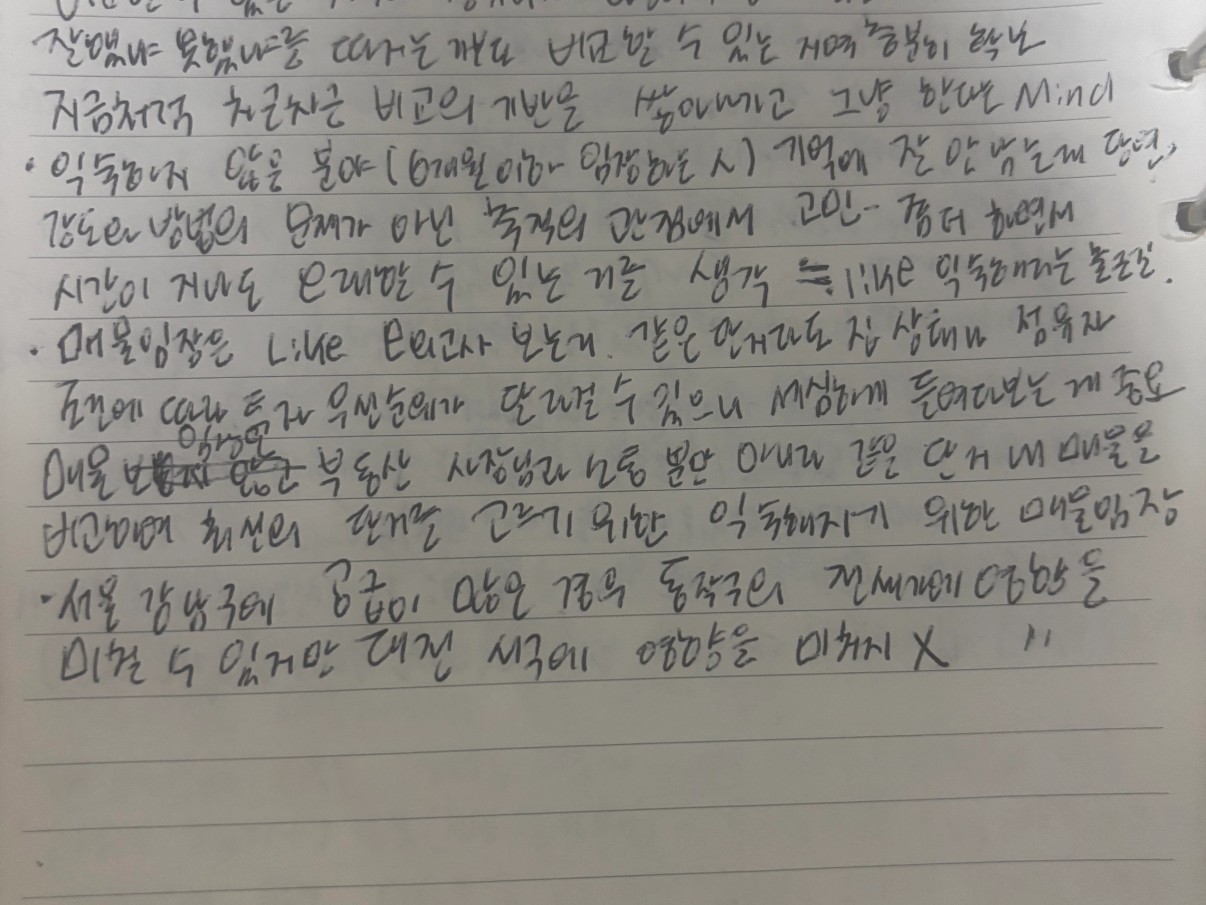 잘했냐 못했냐를 따지는 비교할 수 있는 지역 충분히
지금처럼 차근차근 비교의 기반을 쌓아나가고 그냥 한다는 Mind
· 익숙하지 않은 분야 (6개월 이하 임장하는 시) 기억에 잘 안 남는게 당연,
강도와 방법의 문제가 아닌 축적의 관점에서 고민- 좀 더 하면서
시간이 지나도 오래할 수 있는 거를 생각 like 익숙해지는
· 매물임장은 Like 모의고사 보는거. 같은 단지라도 집 상태나 점유자
조건에 따라 투자 우선순위가 달라질 수 있으니 세심하게 들여다보는 게 중요
매물 임장은 부동산 사장님과 소통 뿐만 아니라 같은 단지 내 매물을
비교하며 최선의 단지를 고르기 위한 익숙해지기 위한 매물임장
· 서울 강남구에 공급이 많은 경우 동작구의 전세가에 영향을
미칠 수 있지만 대전 서구에 영향을 미치지 X "